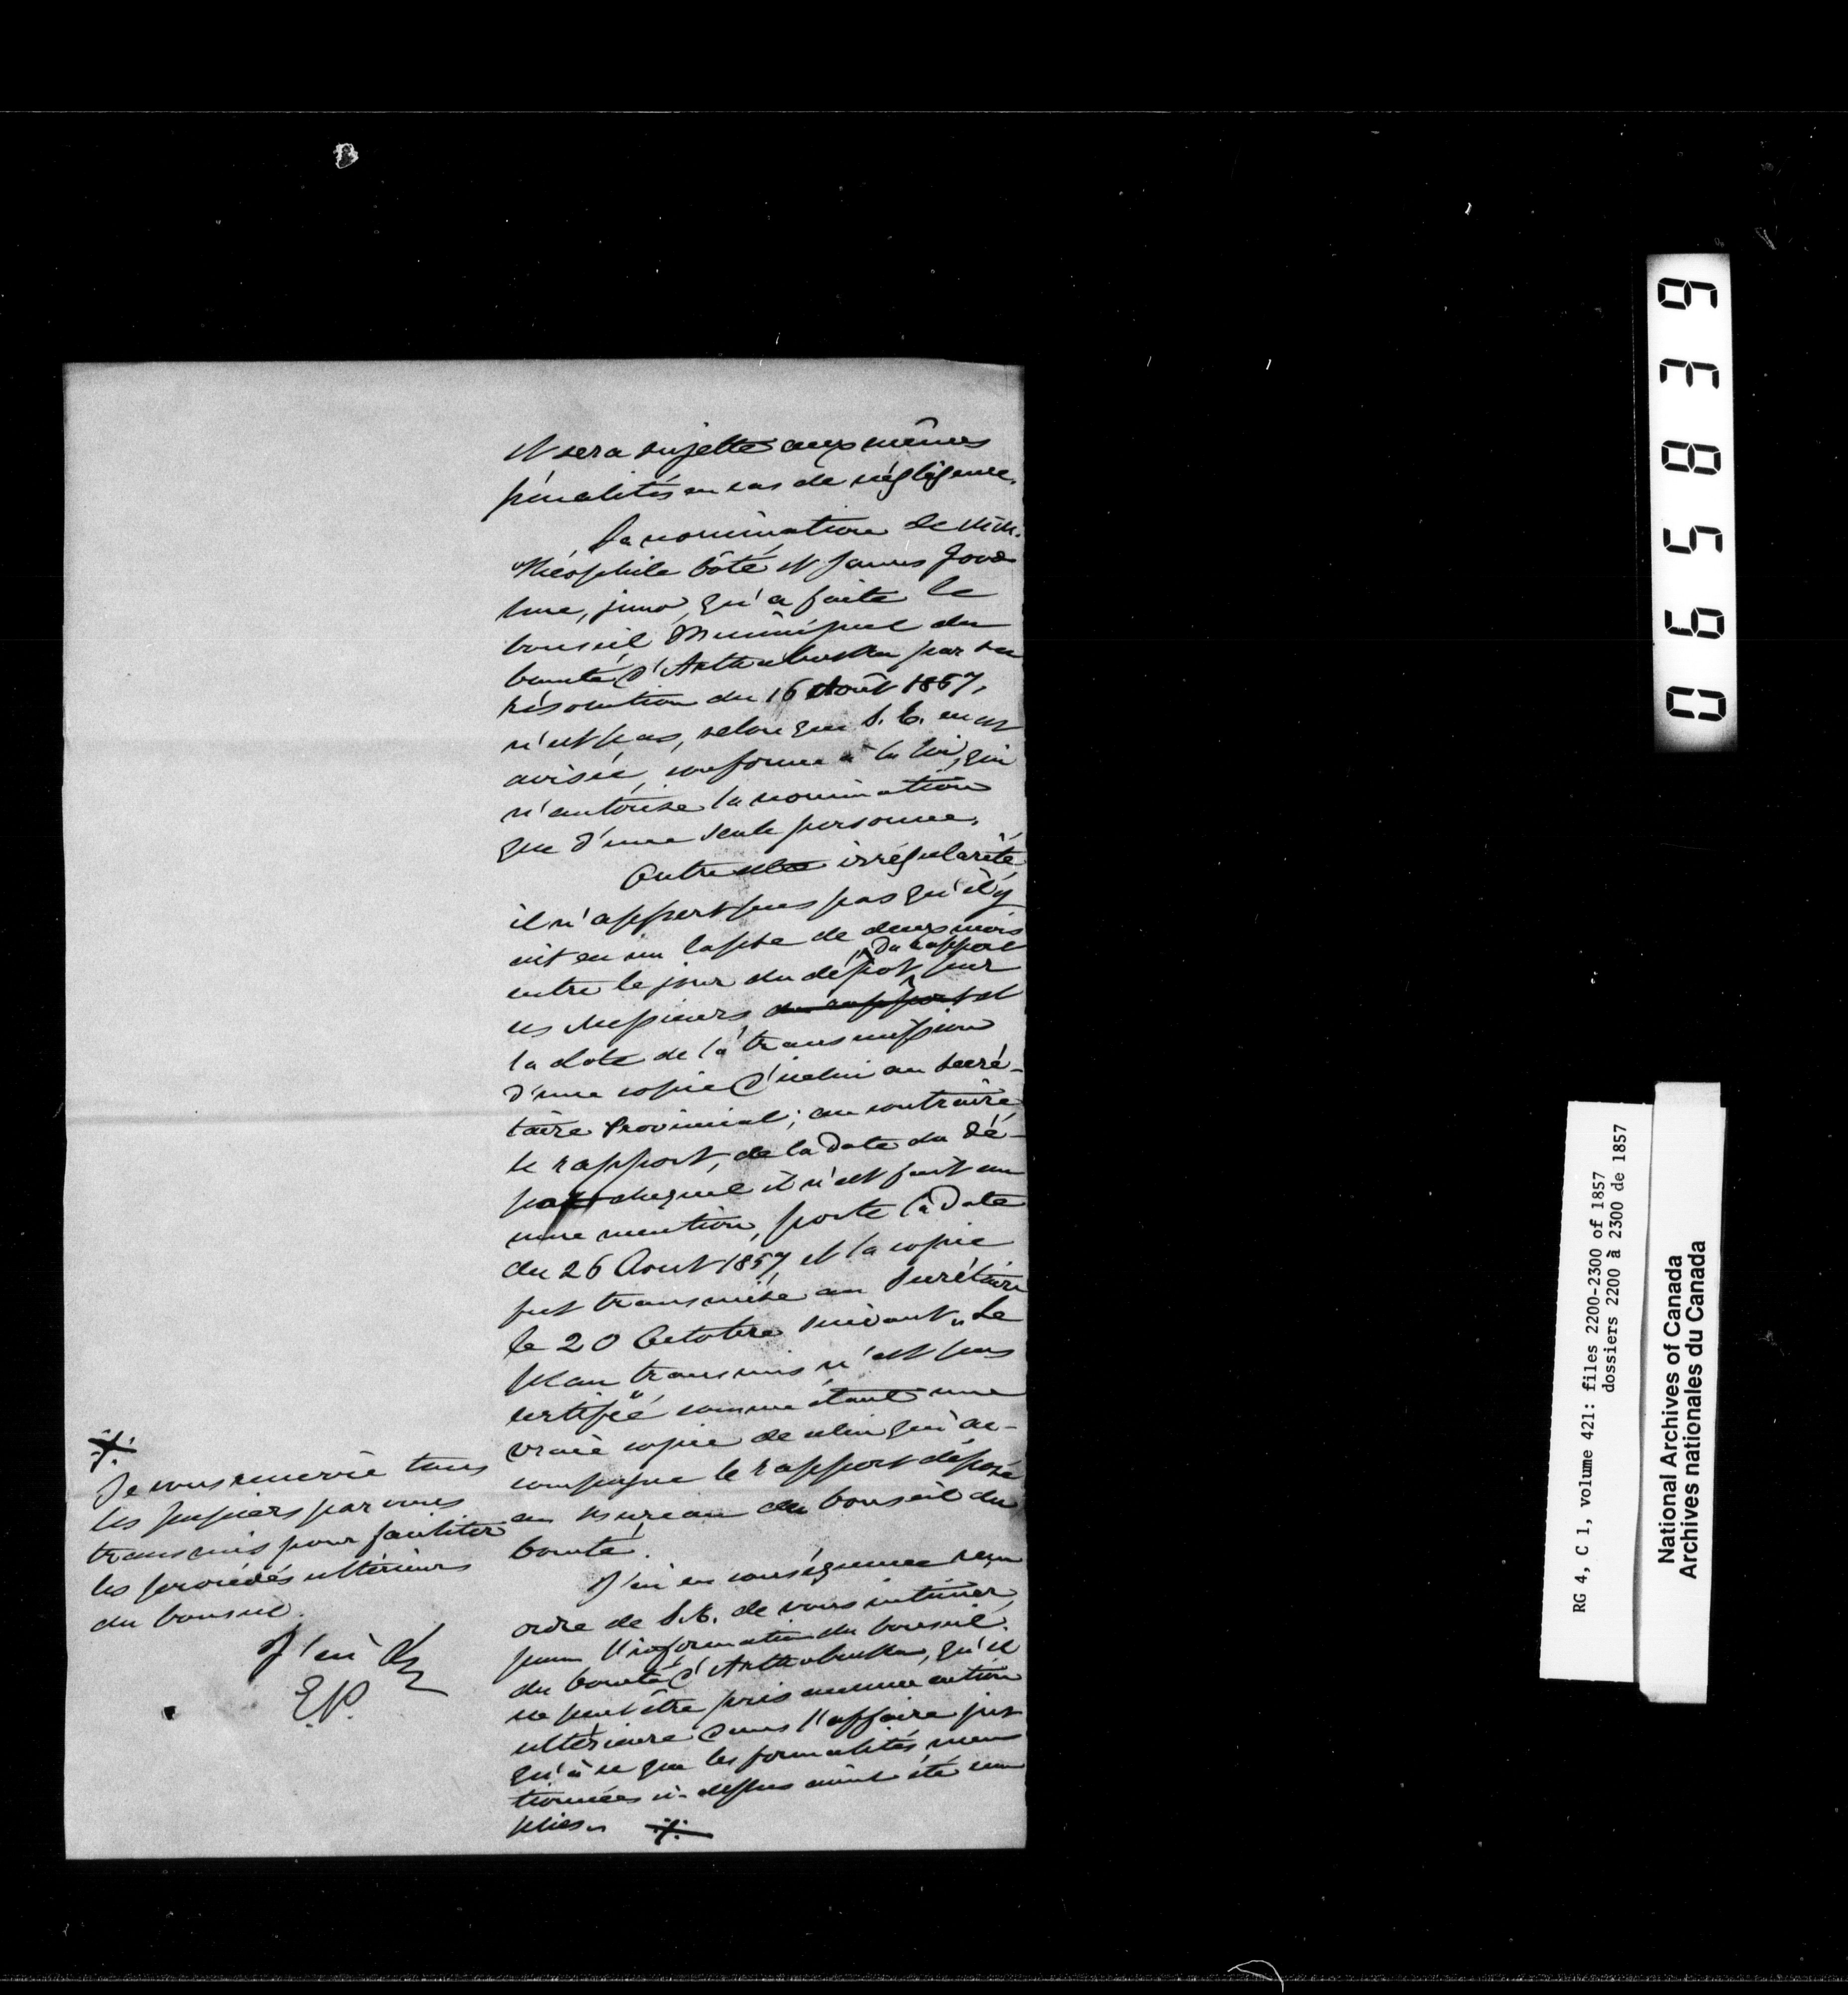 et sera sujette aux mêmes
pénalités en cas de négligence.
La nomination de MM.
Théophile Côté et James Good
hue, junr, qu'a faite le
Conseil Municipal du
Comté d'Arthabaska par sa
résolution du 16 Août 1857,
n'est pas, selon que S. E. en est
avisée, conforme à la loi, qui
n'autorise la nomination
que d'une seule personne.
Outre cette irrégularité,
il n'appert pas pas qu'il y
ait eu un lapse de deux mois
entre le jour du dépot du rapport par
ces Messieurs du rapport et
la date de la transmission
d'une copie d'icelui au Secré-
taire Provincial; au contraire
le rapport, de la date du dé-
pot duquel il n'est fait au
cune mention, porte la date
du 26 Aout 1857 et la copie
fut transmise au Secrétaire
le 20 Octobre suivant. Le
plan transmis n'est pas
certifié comme étant une
vraie copie de celui qui ac-
compagne le rapport déposé
au bureau du Conseil du
Comté.
J'ai en conséquence reçu
ordre de S.E. de vous intimer,
pour l'information du Conseil
du Comté d'Arthabaska, qu'il
ne peut être pris aucune action
ultérieure dans l'affaire jus
qu'à ce que les formalités men
tionnées ci-dessus aient été rem
plies.
Je vous renvoie tous
les papiers par vous
transmis pour faciliter
les procédés ultérieurs
du Conseil.
J'ai &c
E.P.
065839
RG 4, C 1, volume 421: files 2200-2300 of 1857
dossiers 2200 à 2300 de 1857
National Archives of Canada
Archives nationales du Canada